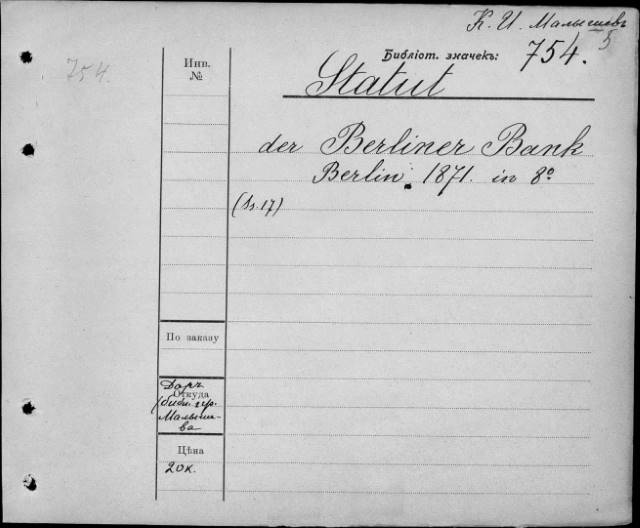 К. И. Малышевъ
5
754.
Инв.
№
Библіот. значекъ: 754.
Statut
der Berliner Bank
Berlin. 1871. in 8º
(Ss. 17)
По заказу
Даръ
Откуда
(библ. гр.
Малыше-
ва
Цѣна
20 к.